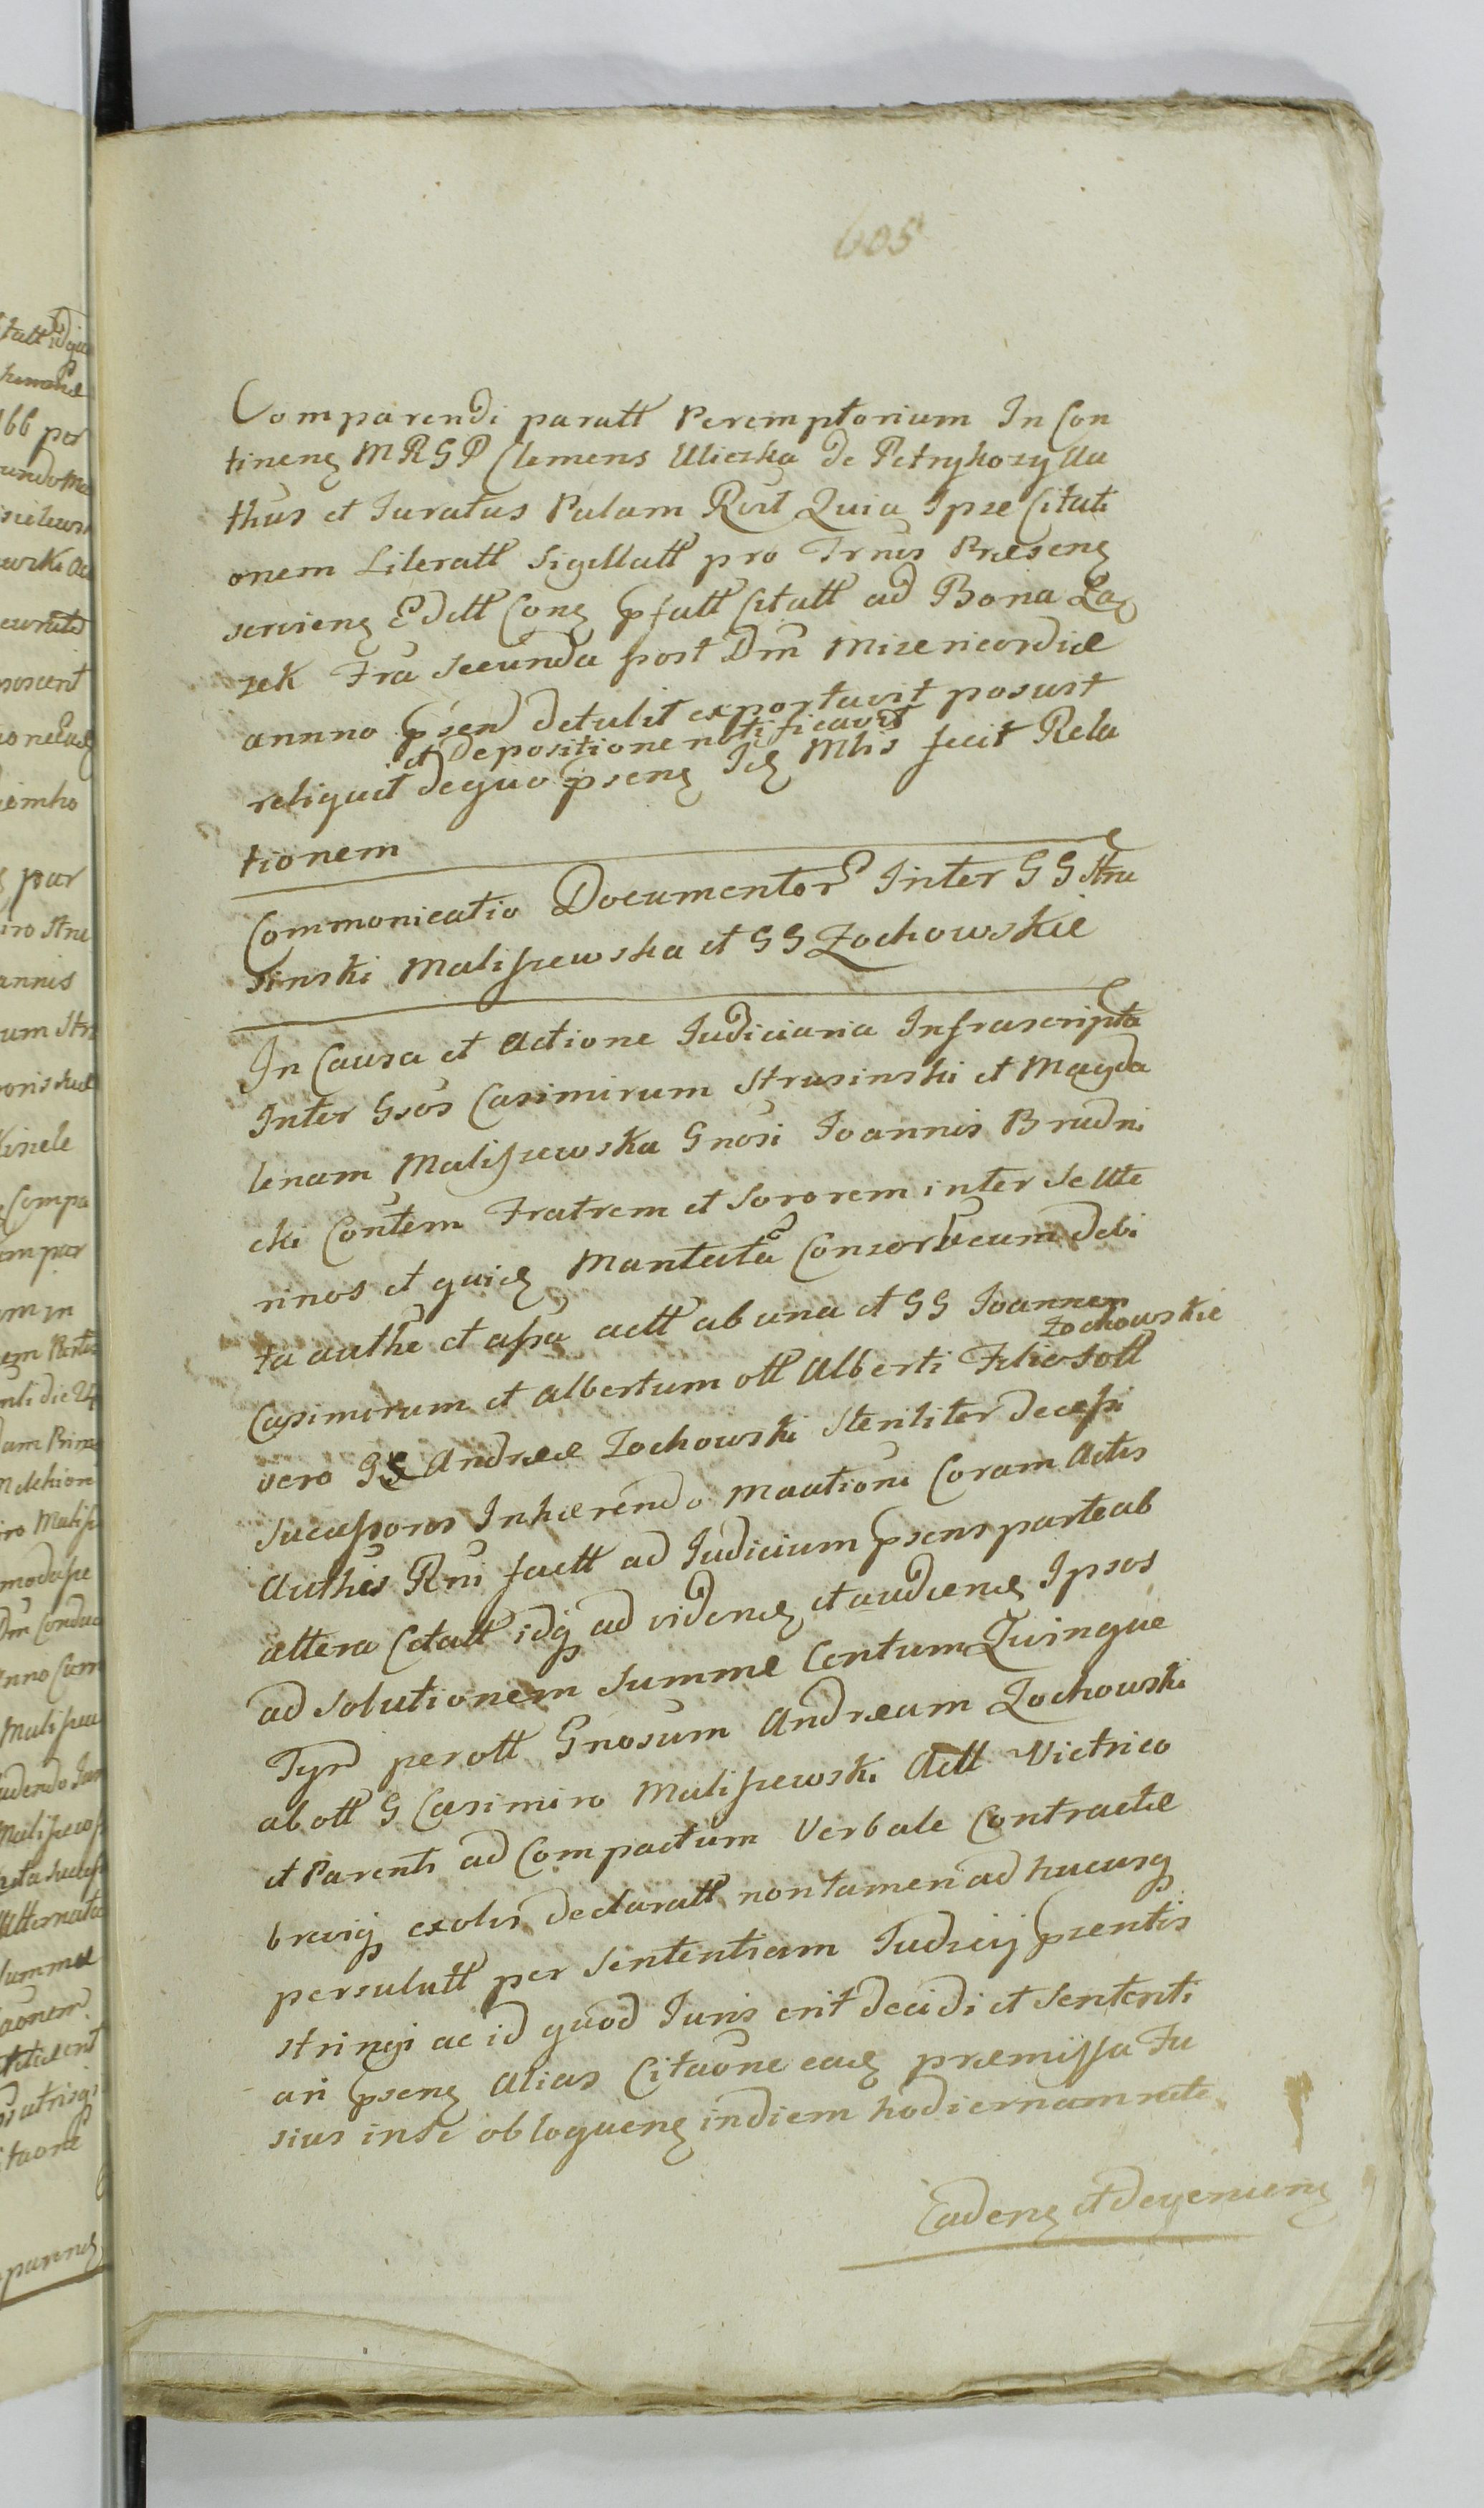 605
Comparendi paratt Peremptorium In Con
tinenz MRGP Clemens Uliczka de Petrykozy Ua
thus et Juratus Palam Rvit Quia Ipse Citati
onem Literatt Sigillatt pro Trnis Præsenz
servienz Editt Conz pfatt Citatt ad Bona Laz
zek Fra Secunda post Dm Misericordiæ
annno psen detulit exportavit posuit
et Depositione notificavit
reliquit dequo psenz Idz Mlis fecit Rela
tionem
Commonicatio Documentor Inter GG Stru
sinski Maliszewska et GG Zochowskie
In Causa et Actione Judiciaria Infrascripta
Inter Gsos Casimirum Strusinski et Magda
lenam Maliszewska Gnosi Joannis Brudni
cki Contem Fratrem et Sororem inter se Ute
rinos et quidz Mantata Consortt cum debi
ta authe et assa actt ab una et GG Joannem
Zochowskie
Casimirum et Albertum ott Alberti Filios ott
vero GG Andreæ Zochowski Steriliter decessi
Sucessores Inhærendo Maationi Coram Actis
Authis Rni factt ad Judicium psens parte ab
altera Citatt idq ad videndz et audiendz Ipsos
ad Solutionem Summæ Centum Quinque
Tyn per ott Gnosum Andream Zochowski
ab ott G Casimiro Maliszewski Actt Victrico
et Parenti ad Compactum Verbale Contractæ
breviq exolvi declaratt non tamen ad hucusq
persolutt per Sententiam Judicij psentis
stringi ac id quod Juris erit decidi et Sententi
ari psenz Alias Citaone eadz præmissa Fu
sius in se obloquenz in diem hodiernam rete
Cadenz et devenienz